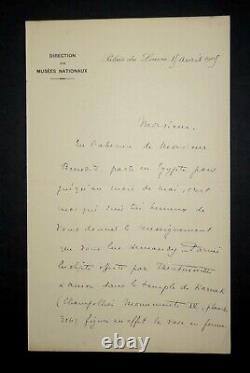 DIRECTION
DES
MUSÉES NATIONAUX
Palais du Louvre 15 avril
Monsieur,
En l'absence de Monsieur
Bénédite, parti en Egypte pour
jusqu'au mois de mai, c'est
moi qui suis très heureux de
vous donner le renseignement
que vous me demandez. Parmi
les objets offerts par Thoutmosis
à Amon dans le temple de Karnak
(Champollion Monuments IV, planche
316) figure en effet le vase en forme
© thewrittenfr